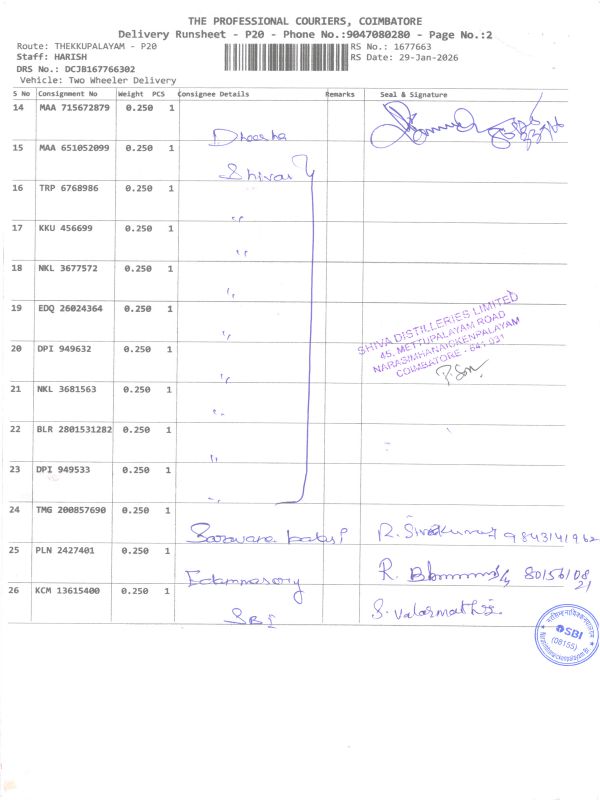 THE PROFESSIONAL COURIERS, COIMBATORE
Delivery Runsheet - P20 - Phone No.:9047080280 - Page No.:2
Route: THEKKUPALAYAM - P20
RS No.: 1677663
Staff: HARISH
RS Date: 29-Jan-2026
DRS No.: DCJB167766302
Vehicle: Two Wheeler Delivery
S No Consignment No Weight PCS Consignee Details Remarks Seal & Signature
14 MAA 715672879 0.250 1
15 MAA 651052099 0.250 1
Shivas
16 TRP 6768986 0.250 1
17 KKU 456699 0.250 1
18 NKL 3677572 0.250 1
19 EDQ 26024364 0.250 1
SHIVA DISTILLERIES LIMITED
45, METTUPALAYAM ROAD
NARASIMHANAICKENPALAYAM
COIMBATORE - 641 031
20 DPI 949632 0.250 1
21 NKL 3681563 0.250 1
22 BLR 2801531282 0.250 1
23 DPI 949533 0.250 1
24 TMG 200857690 0.250 1
R. Sivakumar 9843141962
25 PLN 2427401 0.250 1
R. 8015610821
26 KCM 13615400 0.250 1
SBI
S. Valarmathi
SBI
(08155)